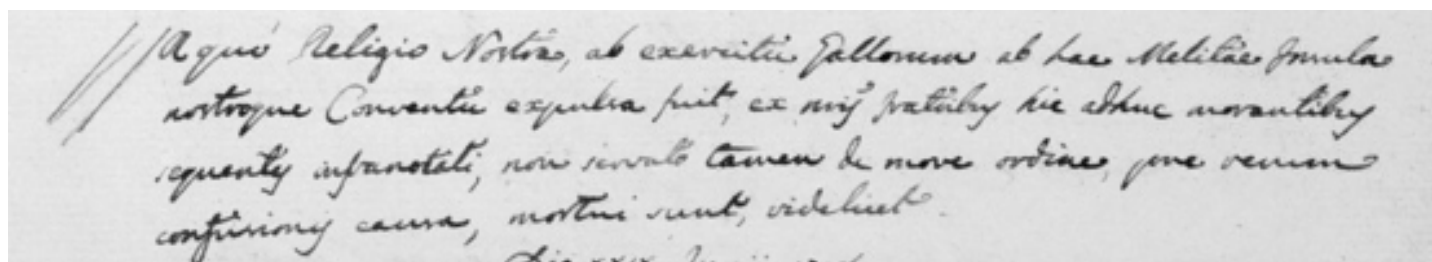 A quo Religio Nostra, ab exercitu Gallorum ab hac Melitae Insula
nostroque Conventu expulsa fuit, ex nris fratribus hic adhuc morantibus
sequentes infranotati, non servato tamen de more ordine, pne rerum
confusionis causa, mortui sunt, videlicet.
Die xxix